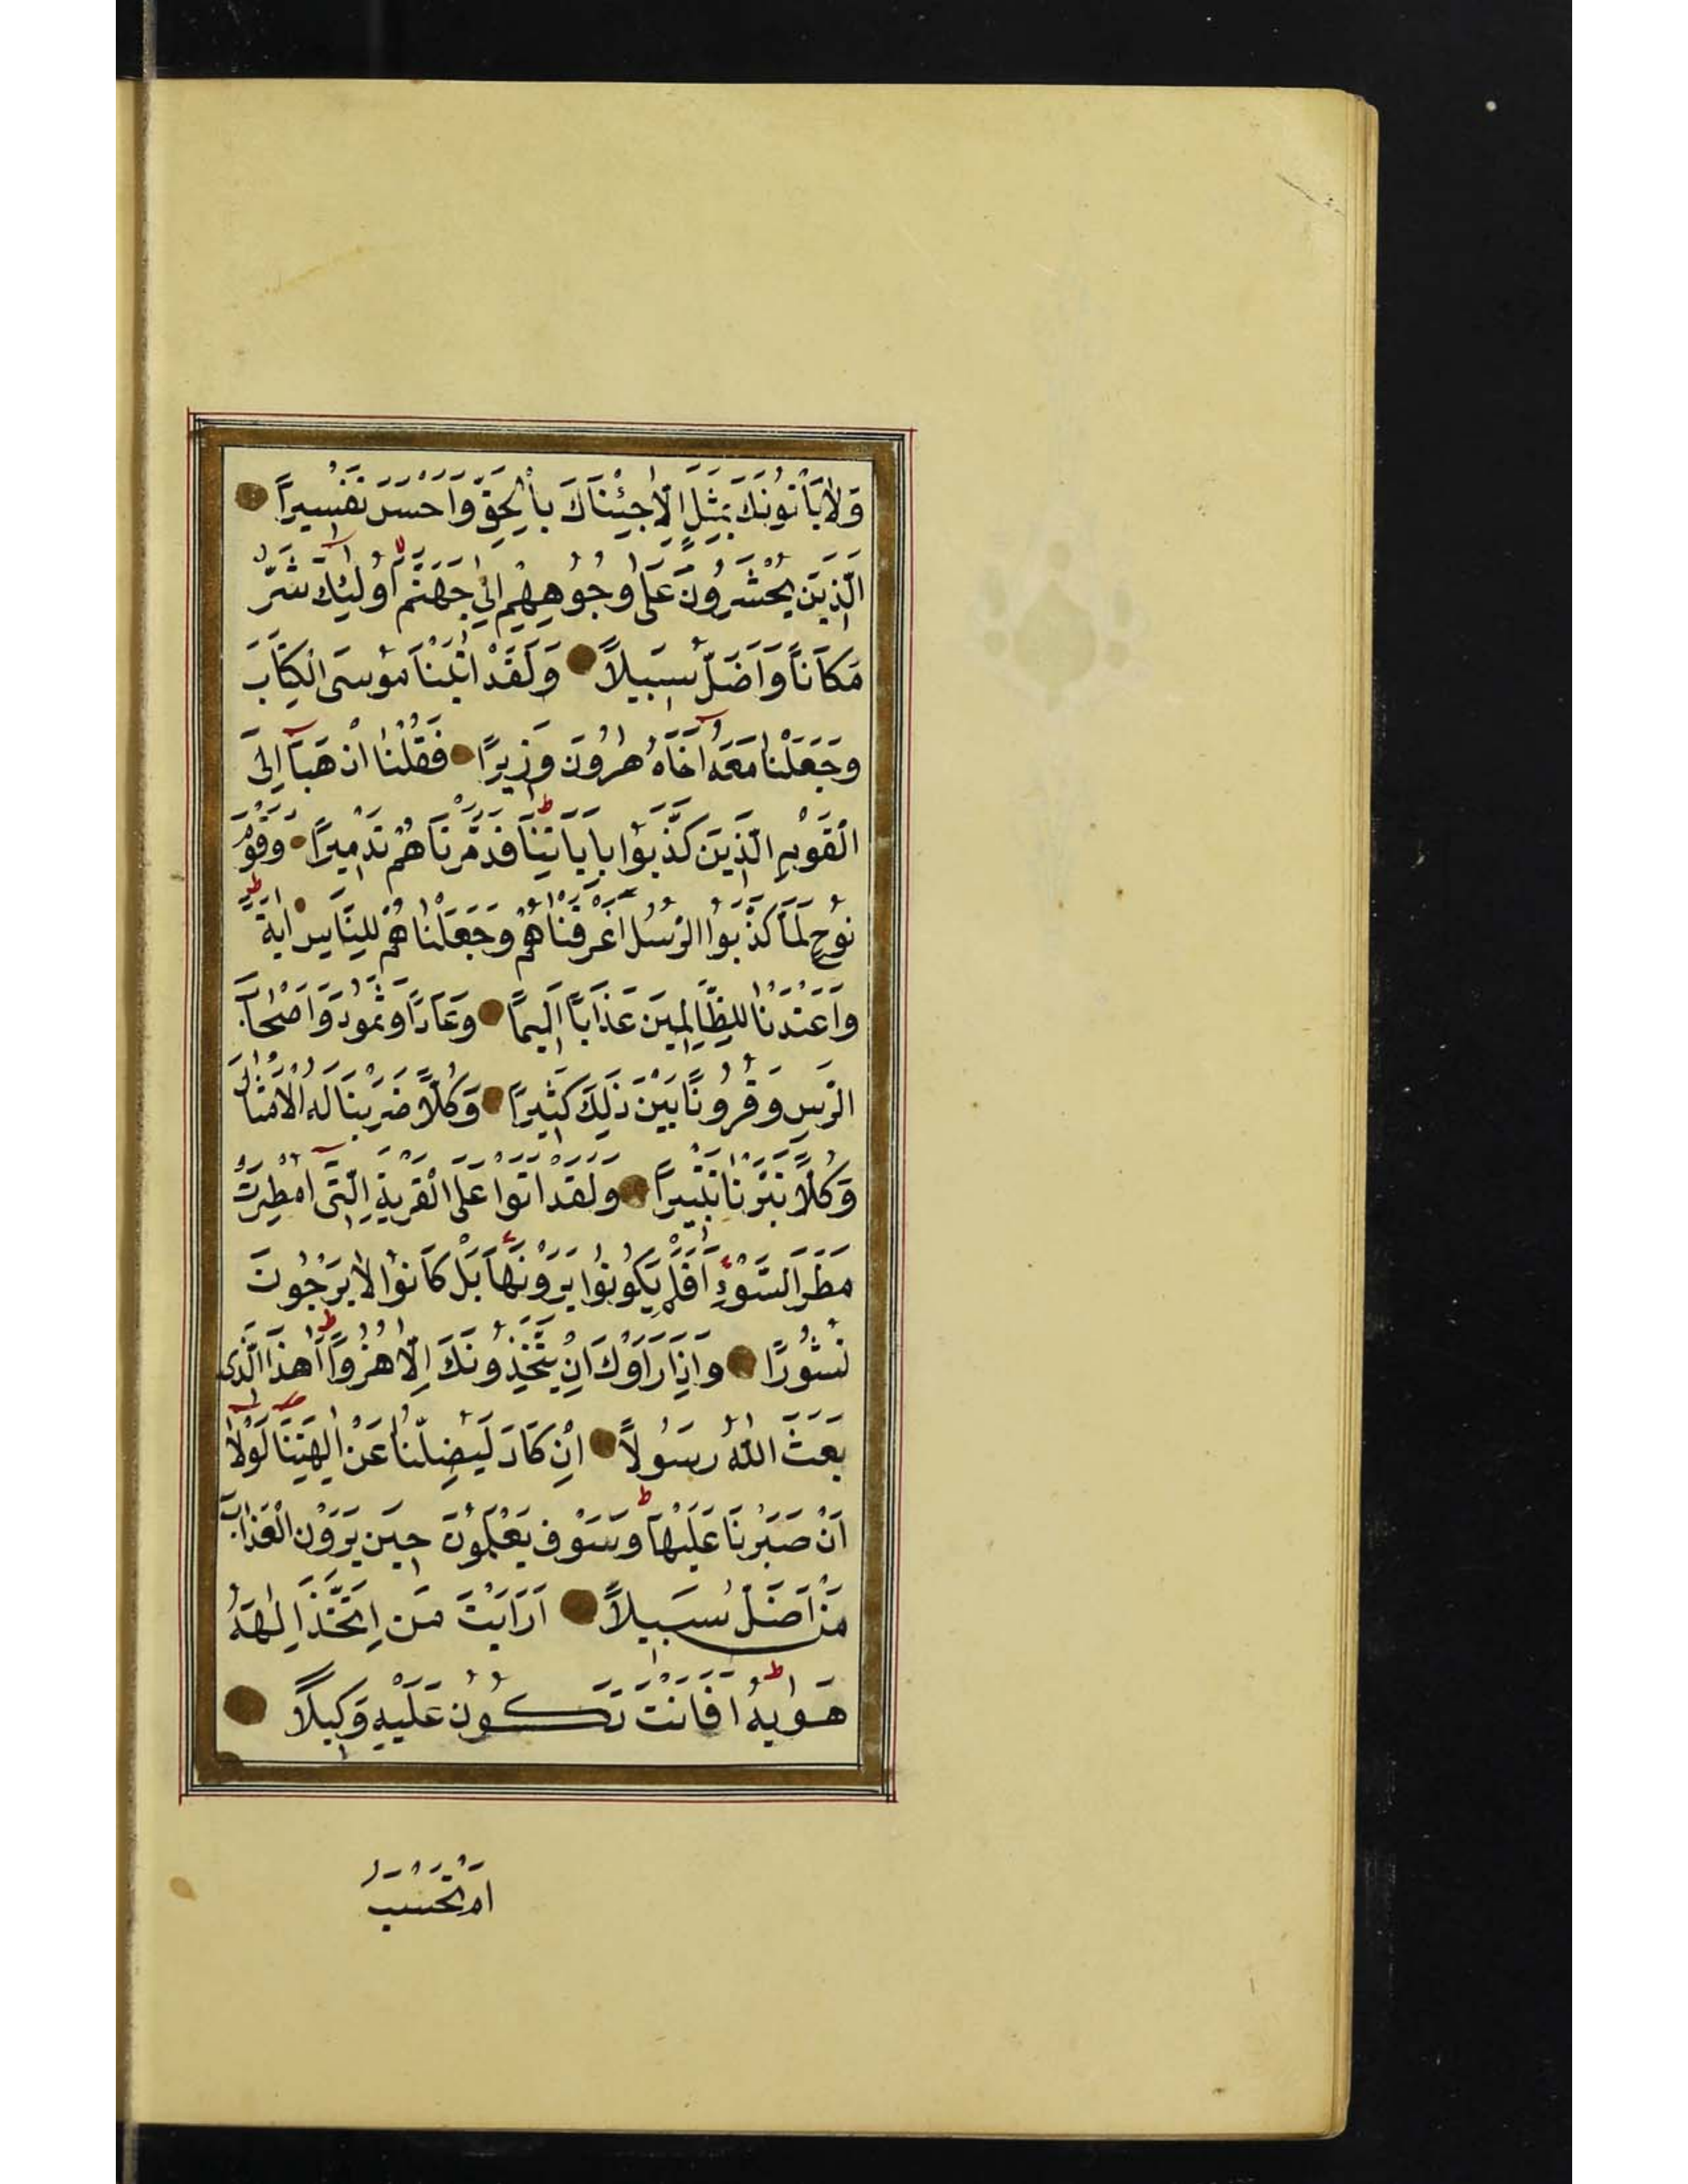 وَلَا يَأْتُونَكَ بِمَثَلٍ اِلَّا جِئْنَاكَ بِالْحَقِّ وَاَحْسَنَ تَفْسِيرًا
اَلَّذِينَ يُحْشَرُونَ عَلٰى وُجُوهِهِمْ اِلٰى جَهَنَّمَ اُولٰئِكَ شَرٌّ
مَكَانًا وَاَضَلُّ سَبِيلًا وَلَقَدْ اٰتَيْنَا مُوسَى الْكِتَابَ
وَجَعَلْنَا مَعَهُ اَخَاهُ هٰرُونَ وَزِيرًا فَقُلْنَا اذْهَبَا اِلَى
الْقَوْمِ الَّذِينَ كَذَّبُوا بِاٰيَاتِنَا فَدَمَّرْنَاهُمْ تَدْمِيرًا وَقَوْمَ
نُوحٍ لَمَّا كَذَّبُوا الرُّسُلَ اَغْرَقْنَاهُمْ وَجَعَلْنَاهُمْ لِلنَّاسِ اٰيَةً
وَاَعْتَدْنَا لِلظَّالِمِينَ عَذَابًا اَلِيمًا وَعَادًا وَثَمُودَ وَاَصْحَابَ
الرَّسِّ وَقُرُونًا بَيْنَ ذٰلِكَ كَثِيرًا وَكُلًّا ضَرَبْنَا لَهُ الْاَمْثَالَ
وَكُلًّا تَبَّرْنَا تَتْبِيرًا وَلَقَدْ اَتَوْا عَلَى الْقَرْيَةِ الَّتِى اُمْطِرَتْ
مَطَرَ السَّوْءِ اَفَلَمْ يَكُونُوا يَرَوْنَهَا بَلْ كَانُوا لَا يَرْجُونَ
نُشُورًا وَاِذَا رَاَوْكَ اِنْ يَتَّخِذُونَكَ اِلَّا هُزُوًا اَهٰذَا الَّذِى
بَعَثَ اللّٰهُ رَسُولًا اِنْ كَادَ لَيُضِلُّنَا عَنْ اٰلِهَتِنَا لَوْلَا
اَنْ صَبَرْنَا عَلَيْهَا وَسَوْفَ يَعْلَمُونَ حِينَ يَرَوْنَ الْعَذَابَ
مَنْ اَضَلُّ سَبِيلًا اَرَاَيْتَ مَنِ اتَّخَذَ اِلٰهَهُ
هَوٰيهُ اَفَاَنْتَ تَكُونُ عَلَيْهِ وَكِيلًا
اَمْ تَحْسَبُ